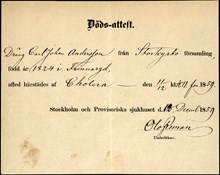 Döds-attest.
Dräng Carl Johan Andersson från Storkyrko församling,
född år 1824 i
afled härstädes af Cholera den 11/12 kl. 11 f m 1859.
Stockholm och Provisoriska sjukhuset d. 12 Decemb 1859